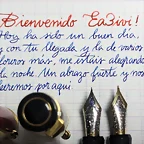 Bienvenido Ea3ivi!
Hoy ha sido un buen día,
y con tu llegada, y la de varios
foreros más, me estáis alegrando
la noche. Un abrazo fuerte y nos
leeremos por aquí.